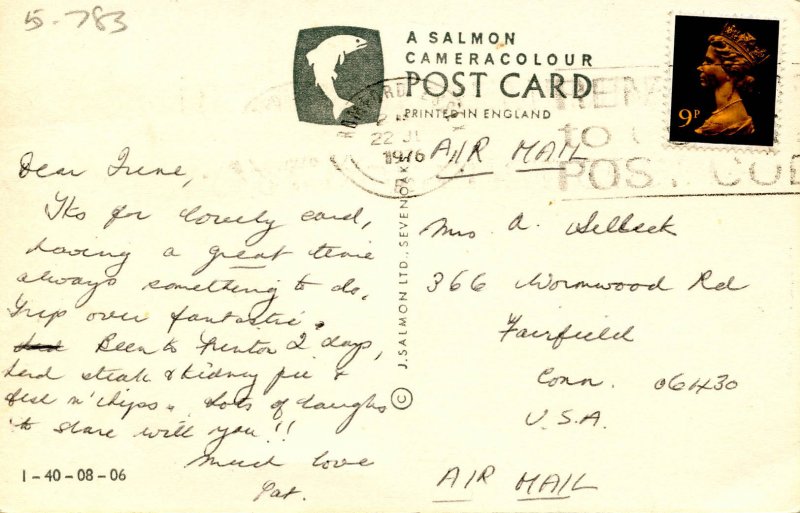 5-783
A SALMON
CAMERACOLOUR
POST CARD
PRINTED IN ENGLAND
22 JL
1976
9P
REM
to
POST CODE
AIR MAIL
Dear Irene,
Tks for lovely card,
having a great time
always something to do.
Trip over fantastic.
Been to 2 days,
had steak & kidney pie &
fish n' chips. Lots of laughs
to share will you!!
Much love
Pat.
1-40-08-06
© J. SALMON LTD., SEVENOAKS
Mrs A. Selleck
366 Wormwood Rd
Fairfield
Conn. 06430
U.S.A.
AIR MAIL